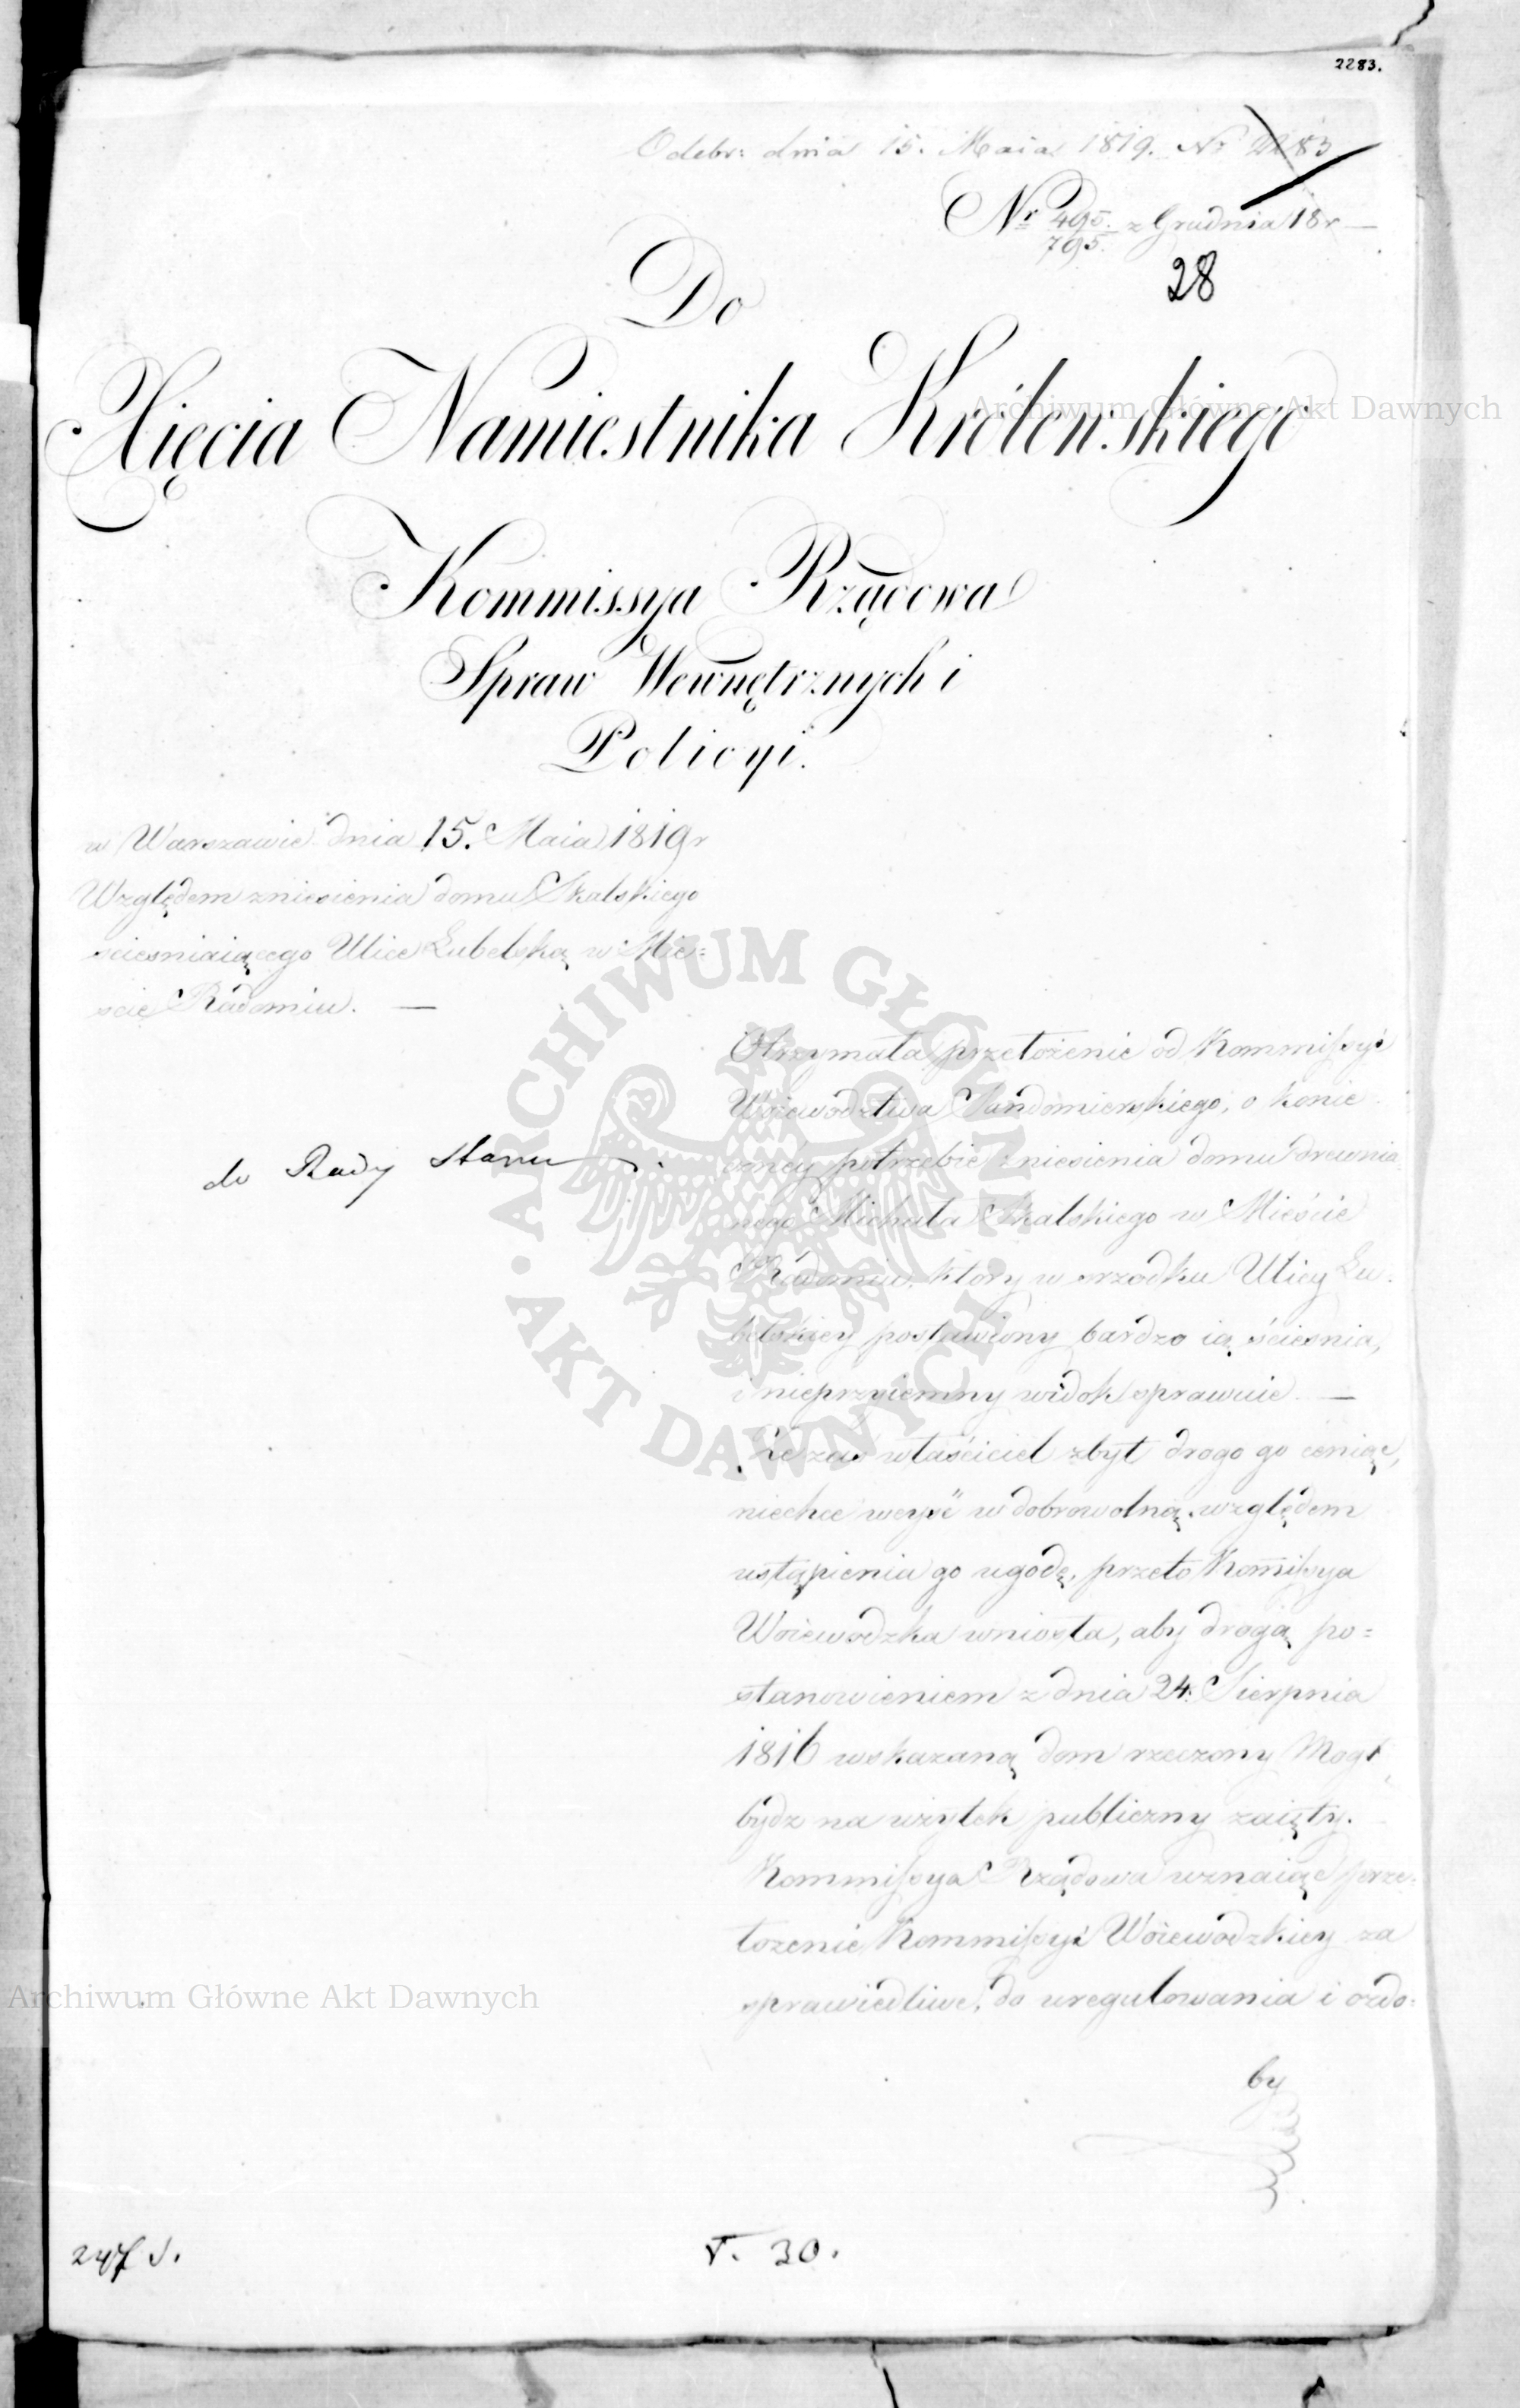 2283.
Odebr: dnia 15. Maia 1819. Nr 2283
Nr 495./795. z Grudnia 18 r —
28
Do
Xięcia Namiestnika Królewskiego
Kommissya Rządowa
Spraw Wewnętrznych i
Policyi.
w Warszawie dnia 15. Maia 1819 r
Względem zniesienia domu Skalskiego
ściesniaiącego Ulice Lubelską w Mie=
ście Radomiu. —
Otrzymała przełożenie od Kommissyi
Woiewodztwa Sandomierskiego, o konie
czney potrzebie zniesienia domu drewnia
nego Michała Skalskiego w Mieście
Radomiu, który w srzodku Ulicy Lu.
belskiey postawiony bardzo ią ściesnia,
i nieprzyiemny widok sprawuie. —
do Rady Stanu
Że zaś właściciel zbyt drogo go ceniąc,
niechce weyść w dobrowolną względem
ustąpienia go ugodę, przeto Kommissya
Woiewodzka wniosła, aby drogą po=
stanowieniem z dnia 24. Sierpnia
1816 wskazaną dom rzeczony Mogł
bydz na użytek publiczny zaięty.
Kommissya Rządowa uznaiąc prze.
łożenie Kommissyi Woiewodzkiey za
sprawiedliwe, do uregulowania i ozdo=
by
247 J.
V. 30.
Archiwum Główne Akt Dawnych
Archiwum Główne Akt Dawnych
ARCHIWUM GŁÓWNE
AKT DAWNYCH